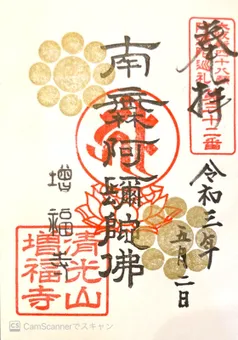 奉拝
令和三年
五月二日
南無阿彌陀佛
増福寺
清光山
増福寺
CS CamScannerでスキャン